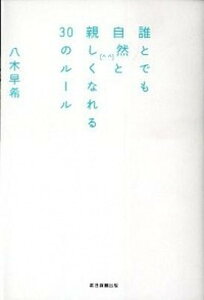 誰とでも
自然と
(^ ^)
親しくなれる
30のルール
八木早希